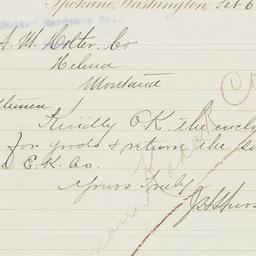 Spokane, Washington, Feb 6
Holter Hardware Co.
A. M. Holter Co
Helena
Montana
Kindly O.K. the enclo
for goods & return the sa
E.K. Co.
Yours Truly